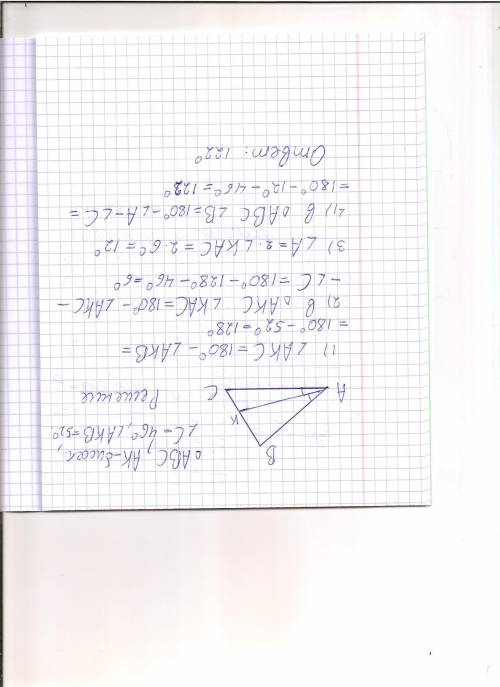 △ABC, AK-биссек.,
∠C=46°, ∠AKB=52°.
B
K
A
C
Решение
1) ∠AKC=180°-∠AKB=
=180°-52°=128°
2) В △AKC ∠KAC=180°-∠AKC-
-∠C=180°-128°-46°=6°
3) ∠A=2·∠KAC=2·6°=12°
4) В △ABC ∠B=180°-∠A-∠C=
=180°-12°-46°=122°
Ответ: 122°